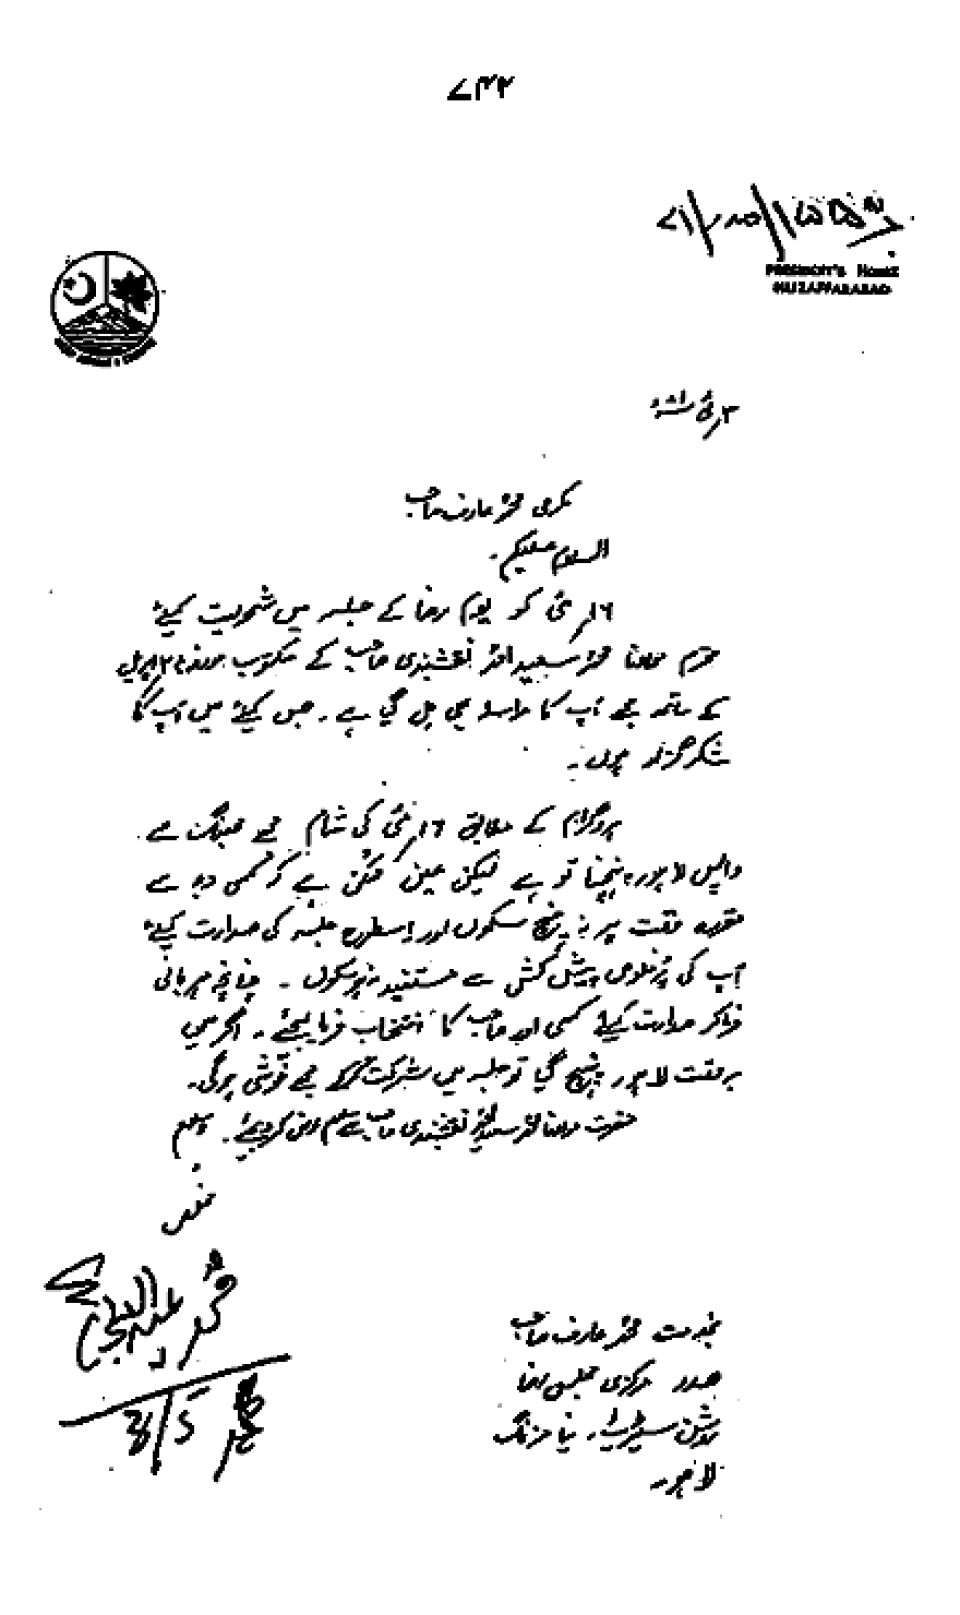 ۷۴۲
PRESIDENT'S HOUSE
MUZAFFARABAD
مکرمی محمد عارف صاحب
السلام علیکم۔
۱۶ مئی کو یوم رضا کے جلسہ میں شمولیت کیلئے
محترم مولانا محمد سعید احمد نقشبندی صاحب کے مکتوب مورخہ ۲ اپریل
کے ساتھ مجھے آپ کا مراسلہ بھی مل گیا ہے۔ جس کیلئے میں آپ کا
شکر گزار ہوں۔
پروگرام کے مطابق ۱۶ مئی کی شام مجھے سے
واپس لاہور پہنچنا تو ہے لیکن عین ممکن ہے کہ کسی وجہ سے
مقررہ وقت پر نہ پہنچ سکوں اور اسطرح جلسہ کی صدارت کیلئے
آپ کی پُرخلوص پیش کش سے مستفید نہ ہو سکوں۔ چنانچہ مہربانی
فرما کر صدارت کیلئے کسی اور صاحب کا انتخاب فرما لیجئے۔ اگر میں
بروقت لاہور پہنچ گیا تو جلسہ میں شرکت کرکے مجھے خوشی ہوگی۔
حضرت مولانا محمد سعید احمد نقشبندی صاحب سے سلام عرض کر دیجئے۔ والسلام
مخلص
بخدمت محمد عارف صاحب
صدر مرکزی مجلس رضا
روشن سٹریٹ، نیا مزنگ
لاہور۔